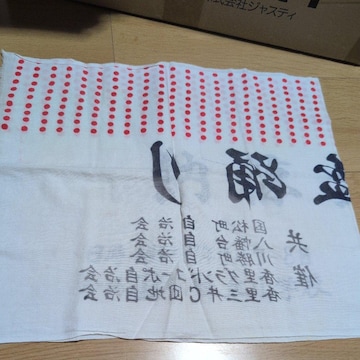 会社ジャスティ
踊り
共催
国松町自治会
八幡台自治会
川勝町自治会
香里グランドコーポ自治会
香里三井C団地自治会